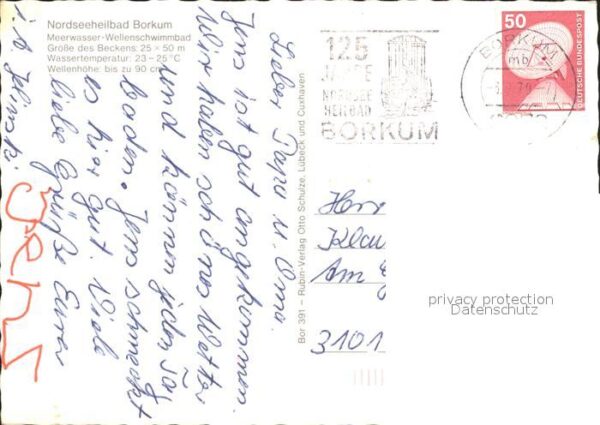 Nordseeheilbad Borkum
Meerwasser-Wellenschwimmbad
Größe des Beckens: 25 × 50 m
Wassertemperatur: 23 – 25°C
Wellenhöhe: bis zu 90 cm
Lieber Papa u. Oma.
Jens ist gut angekommen.
Wir haben schönes Wetter
und können jeden Tag
baden. Jens schmeckt
es hier gut. Viele
liebe Grüße Eurer
Jens
Bor 391 – Rubin-Verlag Otto Schulze, Lübeck und Cuxhaven
125
JAHRE
NORDSEE
HEILBAD
BORKUM
BORKUM
mb
50
DEUTSCHE BUNDESPOST
Herr
Klau
Am
3101
privacy protection
Datenschutz